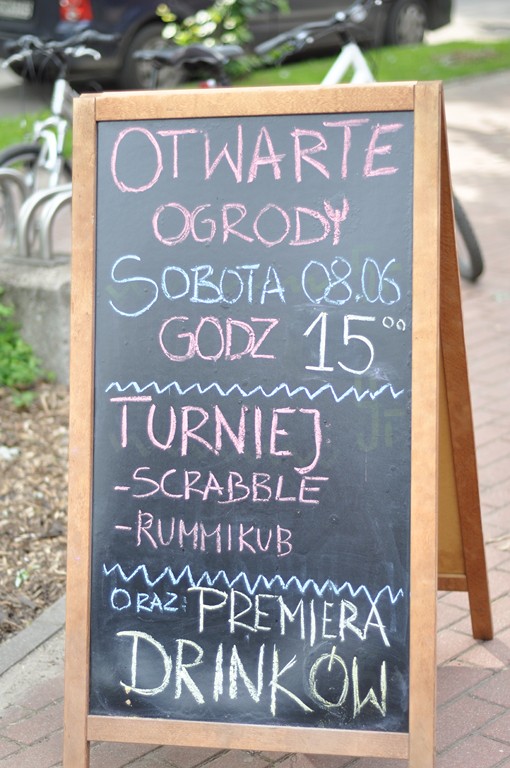 OTWARTE
OGRODY
SOBOTA 08.06
GODZ 15⁰⁰
TURNIEJ
-SCRABBLE
-RUMMIKUB
ORAZ: PREMIERA
DRINKÓW